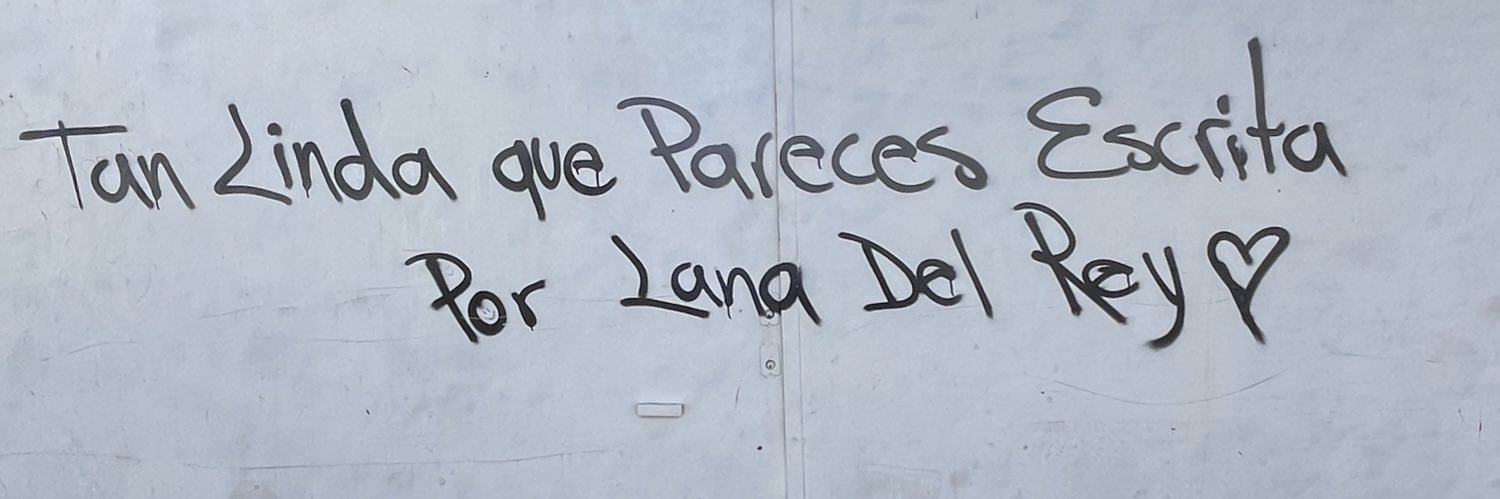 Tan Linda que Pareces Escrita
Por Lana Del Rey ♡